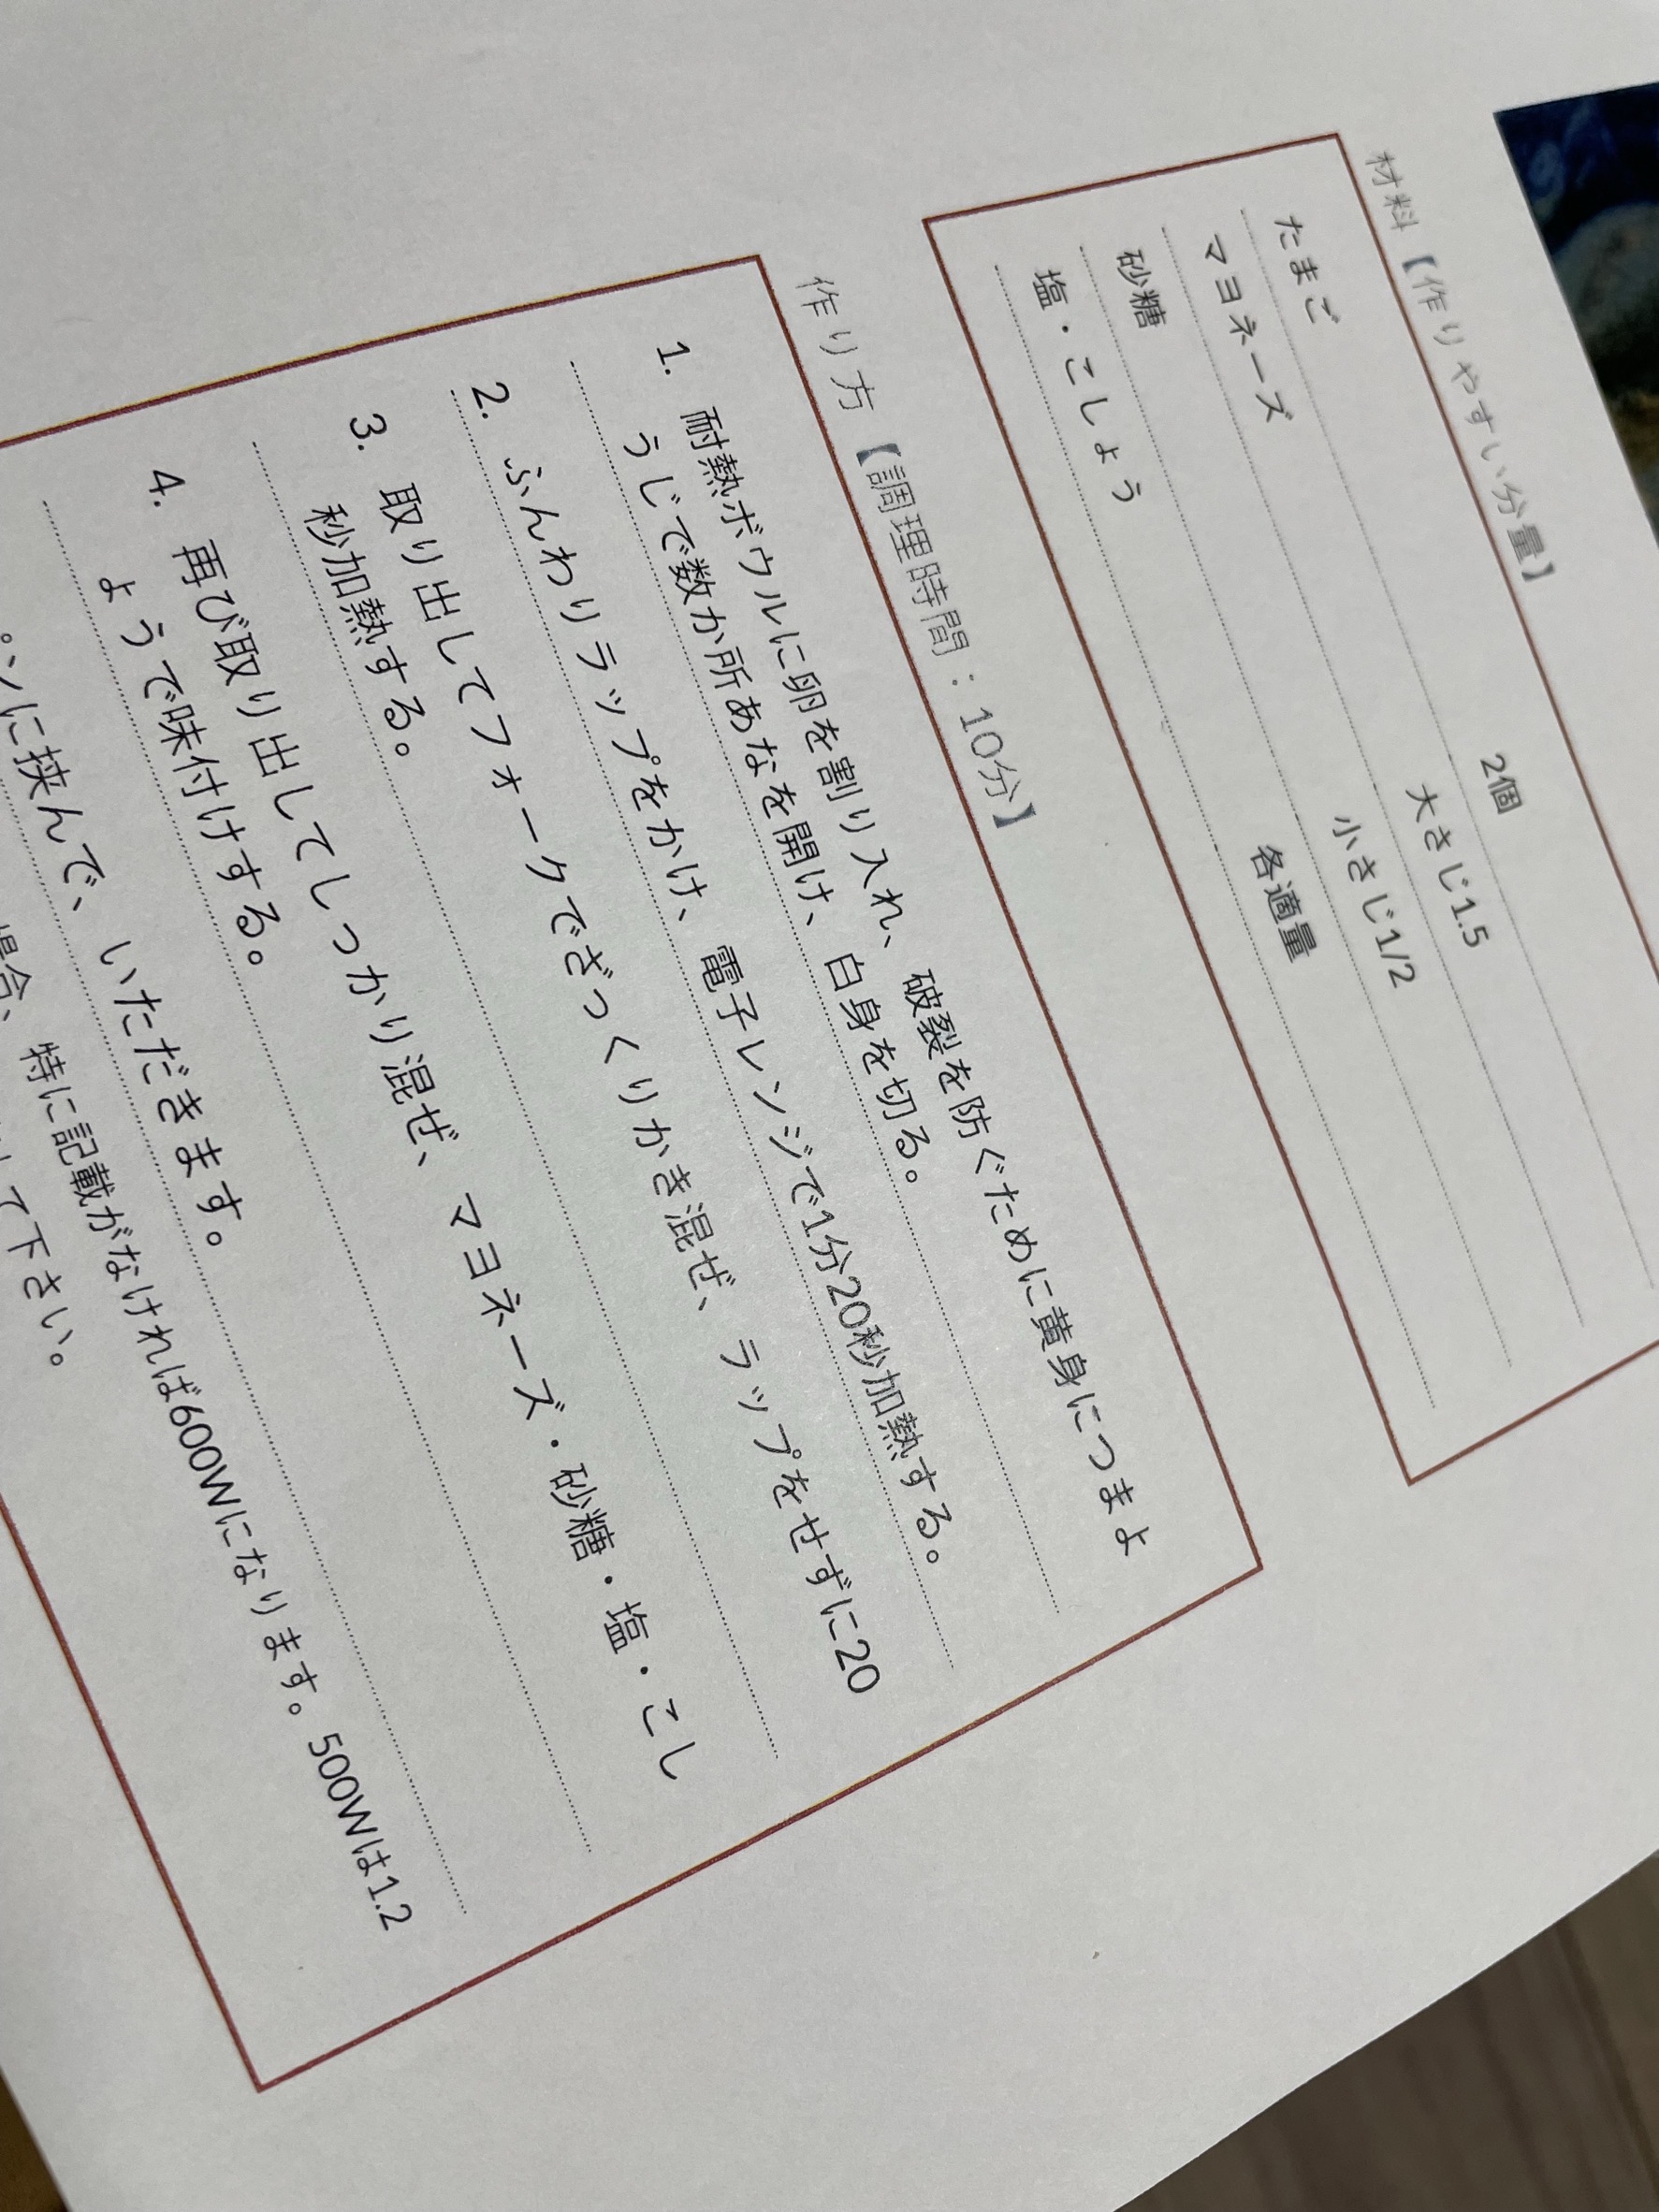 材料【作りやすい分量】
たまご 2個
マヨネーズ 大さじ1.5
砂糖 小さじ1/2
塩・こしょう 各適量
作り方【調理時間：10分】
1. 耐熱ボウルに卵を割り入れ、破裂を防ぐために黄身につまよ
うじで数か所あなを開け、白身を切る。
2. ふんわりラップをかけ、電子レンジで1分20秒加熱する。
3. 取り出してフォークでざっくりかき混ぜ、ラップをせずに20
秒加熱する。
4. 再び取り出してしっかり混ぜ、マヨネーズ・砂糖・塩・こし
ょうで味付けする。
ンに挟んで、いただきます。
場合、特に記載がなければ600Wになります。500Wは1.2
て下さい。